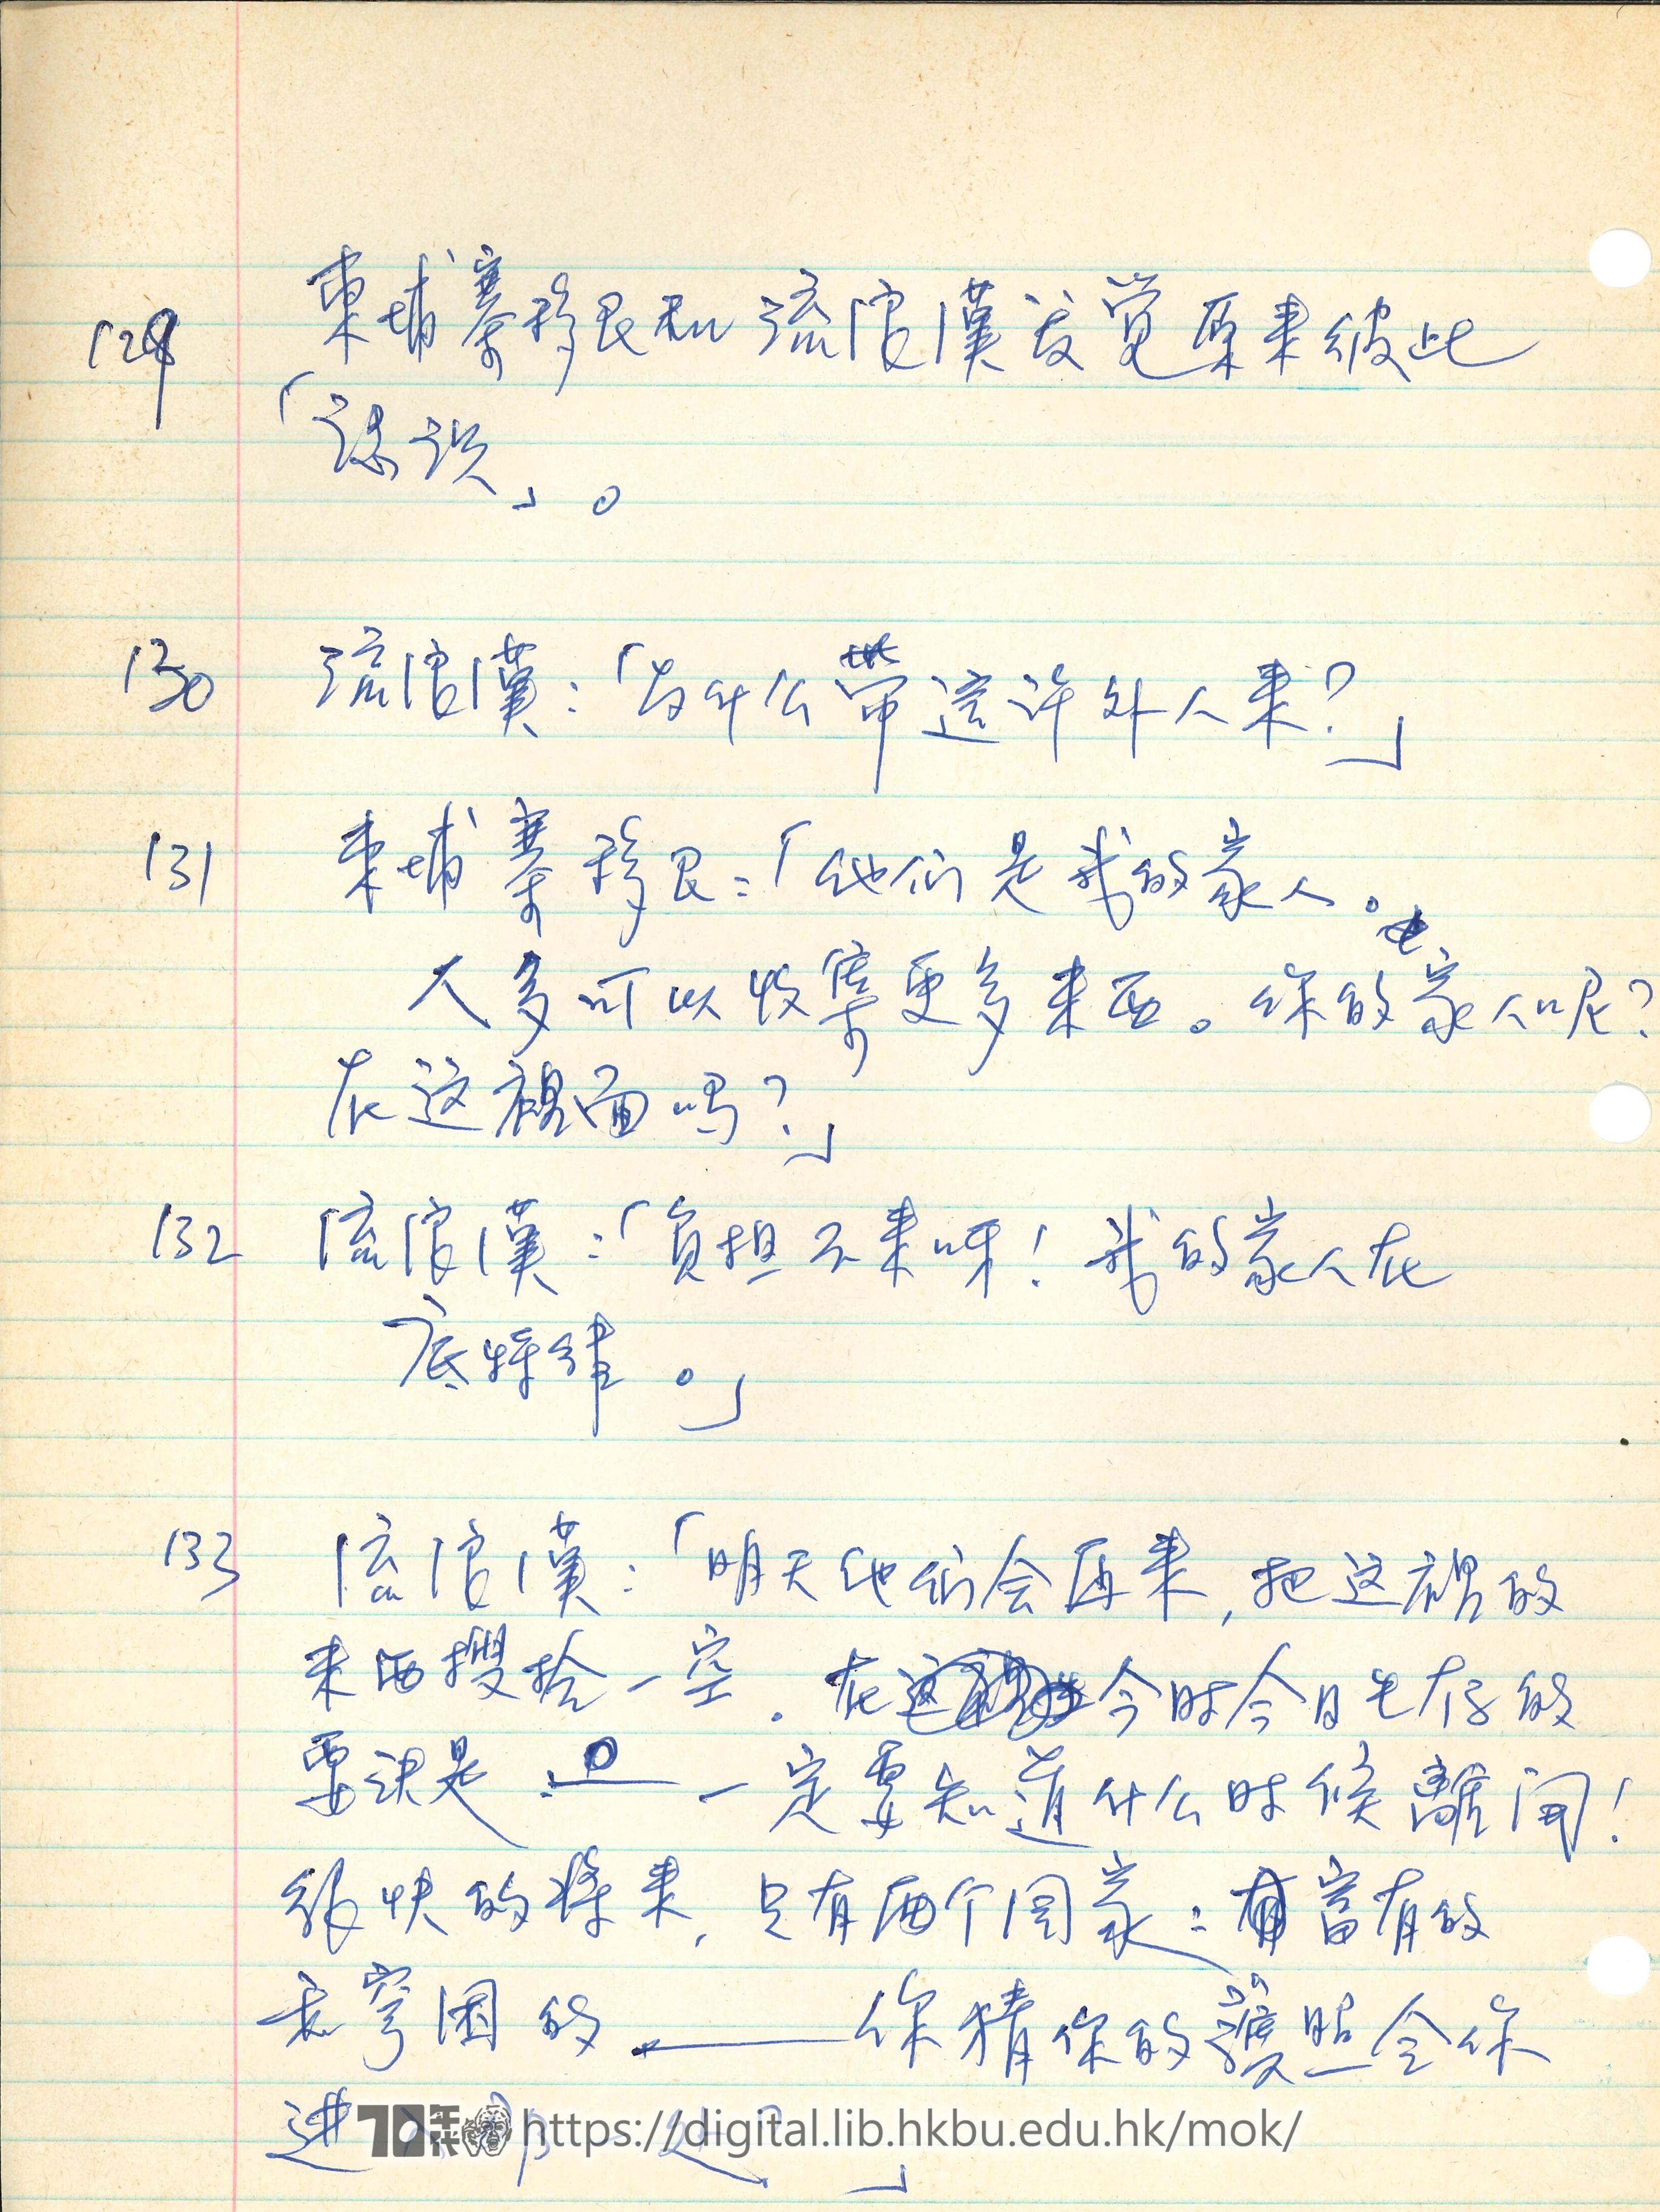 129 柬埔寨移民和流浪漢发覚原来彼此
「误识」。
130 流浪漢：「为什么带这许外人来？」
131 柬埔寨移民：「他们是我的家人。
人多可以收集更多东西。你的家人呢？
在这裡面吗？」
132 流浪漢：「负担不来呀！我的家人在
底特律。」
133 流浪漢：「明天他们会再来，把这裡的
东西搜拾一空。在今时今日生存的
要訣是：——一定要知道什么时候離闭！
很快的将来，只有两个国家：富有的
和穷困的——你猜你的護照会令你
进
70年代 https://digital.lib.hkbu.edu.hk/mok/